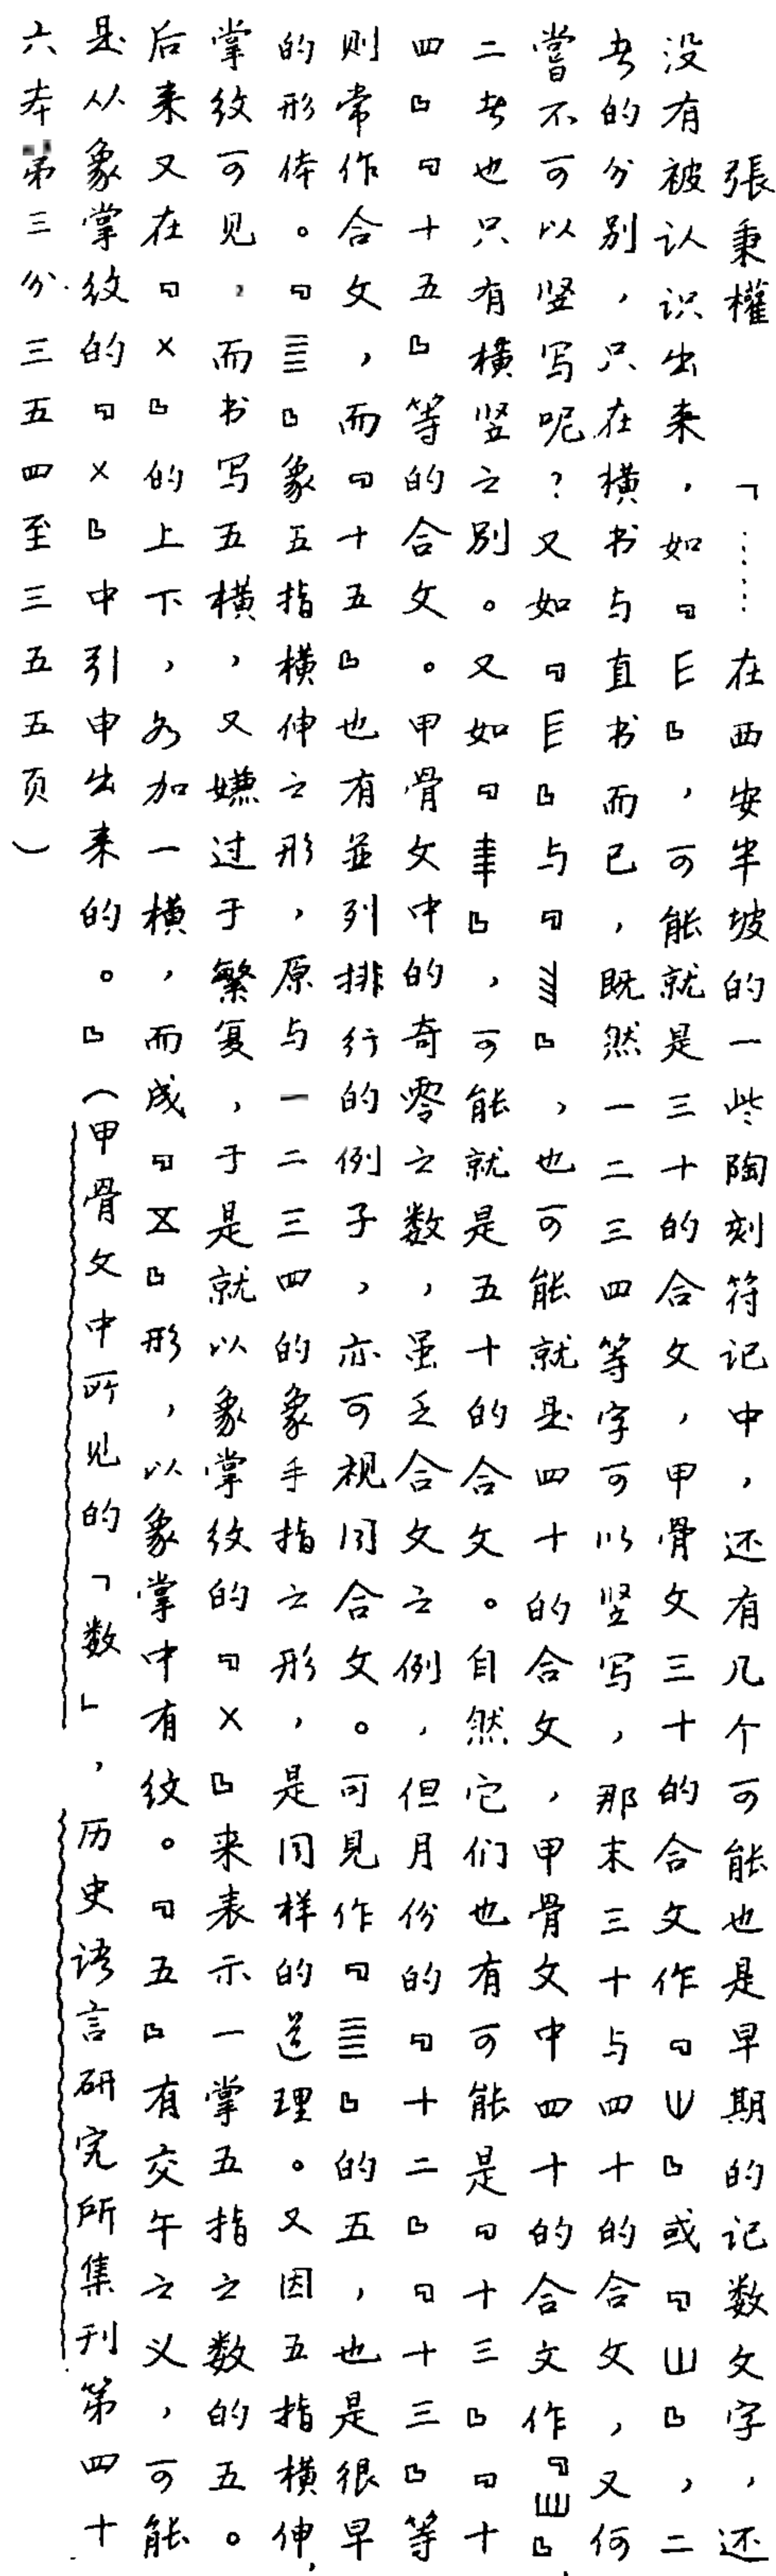 張秉權　「……在西安半坡的一些陶刻符记中，还有几个可能也是早期的记数文字，还
没有被认识出来，如『』，可能就是三十的合文，甲骨文三十的合文作『』或『山』，二
者的分别，只在横书与直书而已，既然一二三四等字可以竖写，那末三十与四十的合文，又何
嘗不可以竖写呢？又如『』与『』，也可能就是四十的合文，甲骨文中四十的合文作『』，
二者也只有横竖之别。又如『』，可能就是五十的合文。自然它们也有可能是『十三』『十
四』『十五』等的合文。甲骨文中的奇零之数，虽乏合文之例，但月份的『十二』『十三』等
则常作合文，而『十五』也有並列排行的例子，亦可视同合文。可見作『𝍤』的五，也是很早
的形体。『𝍤』象五指横伸之形，原与一二三四的象手指之形，是同样的道理。又因五指横伸，
掌纹可见，而书写五横，又嫌过于繁复，于是就以象掌纹的『×』来表示一掌五指之数的五。
后来又在『×』的上下，各加一横，而成『㐅』形，以象掌中有纹。『五』有交午之义，可能
是从象掌纹的『×』中引申出来的。』（甲骨文中所见的「数」，历史语言研究所集刊第四十
六本第三分三五四至三五五页）